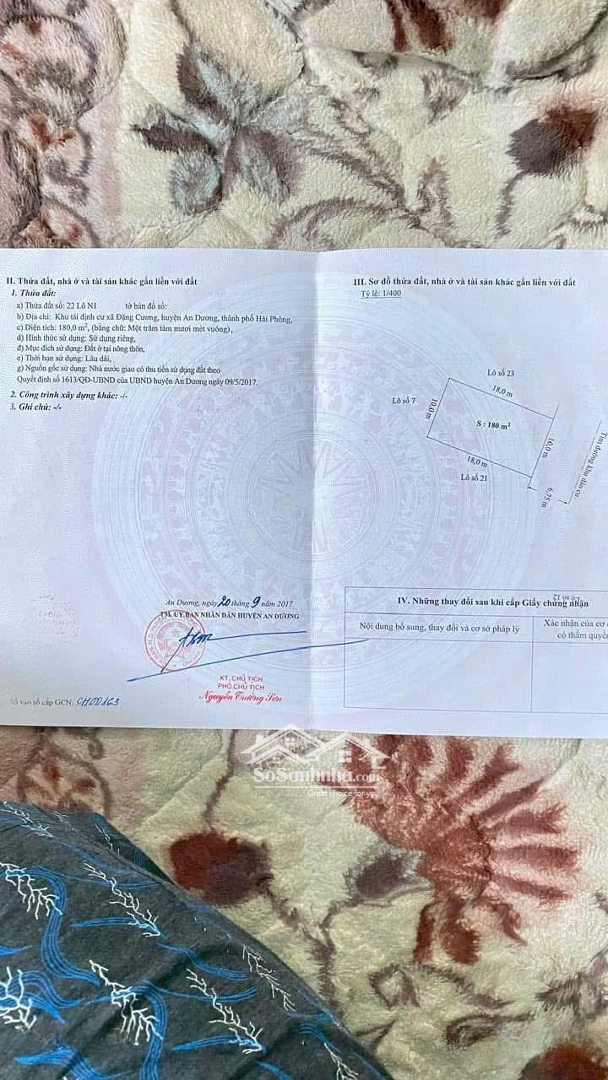 II. Thửa đất, nhà ở và tài sản khác gắn liền với đất
1. Thửa đất:
a) Thửa đất số: 22 Lô N1 tờ bản đồ số:
b) Địa chỉ: Khu tái định cư xã Đặng Cương, huyện An Dương, thành phố Hải Phòng,
c) Diện tích: 180,0 m², (bằng chữ: Một trăm tám mươi mét vuông),
d) Hình thức sử dụng: Sử dụng riêng,
đ) Mục đích sử dụng: Đất ở tại nông thôn,
e) Thời hạn sử dụng: Lâu dài,
g) Nguồn gốc sử dụng: Nhà nước giao có thu tiền sử dụng đất theo
Quyết định số 1613/QĐ-UBND của UBND huyện An Dương ngày 09/5/2017.
2. Công trình xây dựng khác: -/-
3. Ghi chú: -/-
An Dương, ngày 20 tháng 9 năm 2017
TM. ỦY BAN NHÂN DÂN HUYỆN AN DƯƠNG
KT. CHỦ TỊCH
PHÓ CHỦ TỊCH
Nguyễn Trường Sơn
Số vào sổ cấp GCN: CH00163
III. Sơ đồ thửa đất, nhà ở và tài sản khác gắn liền với đất
Tỷ lệ: 1/400
Lô số 23
18,0 m
Lô số 7
10,0 m
S : 180 m²
10,0 m
18,0 m
Lô số 21
6,75 m
Tim đường khu dân cư
IV. Những thay đổi sau khi cấp Giấy chứng nhận
Nội dung bổ sung, thay đổi và cơ sở pháp lý
Xác nhận của cơ
có thẩm quyền
SoSanhnha.com
Great choice for you